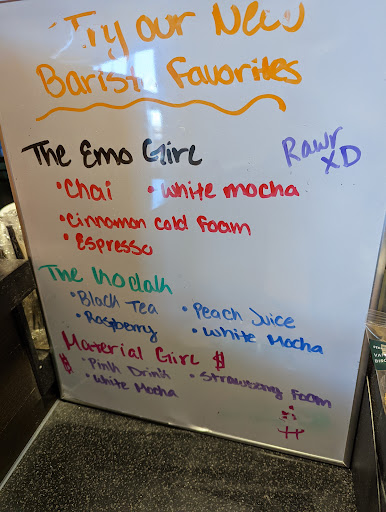 Try our New
Barista Favorites
The Emo Girl
Rawr
XD
• Chai • white mocha
• Cinnamon cold foam
• Espresso
The Kodak
• Black Tea • Peach Juice
• Raspberry • White Mocha
Material Girl $
$ • Pink Drink • Strawberry Foam
• White Mocha